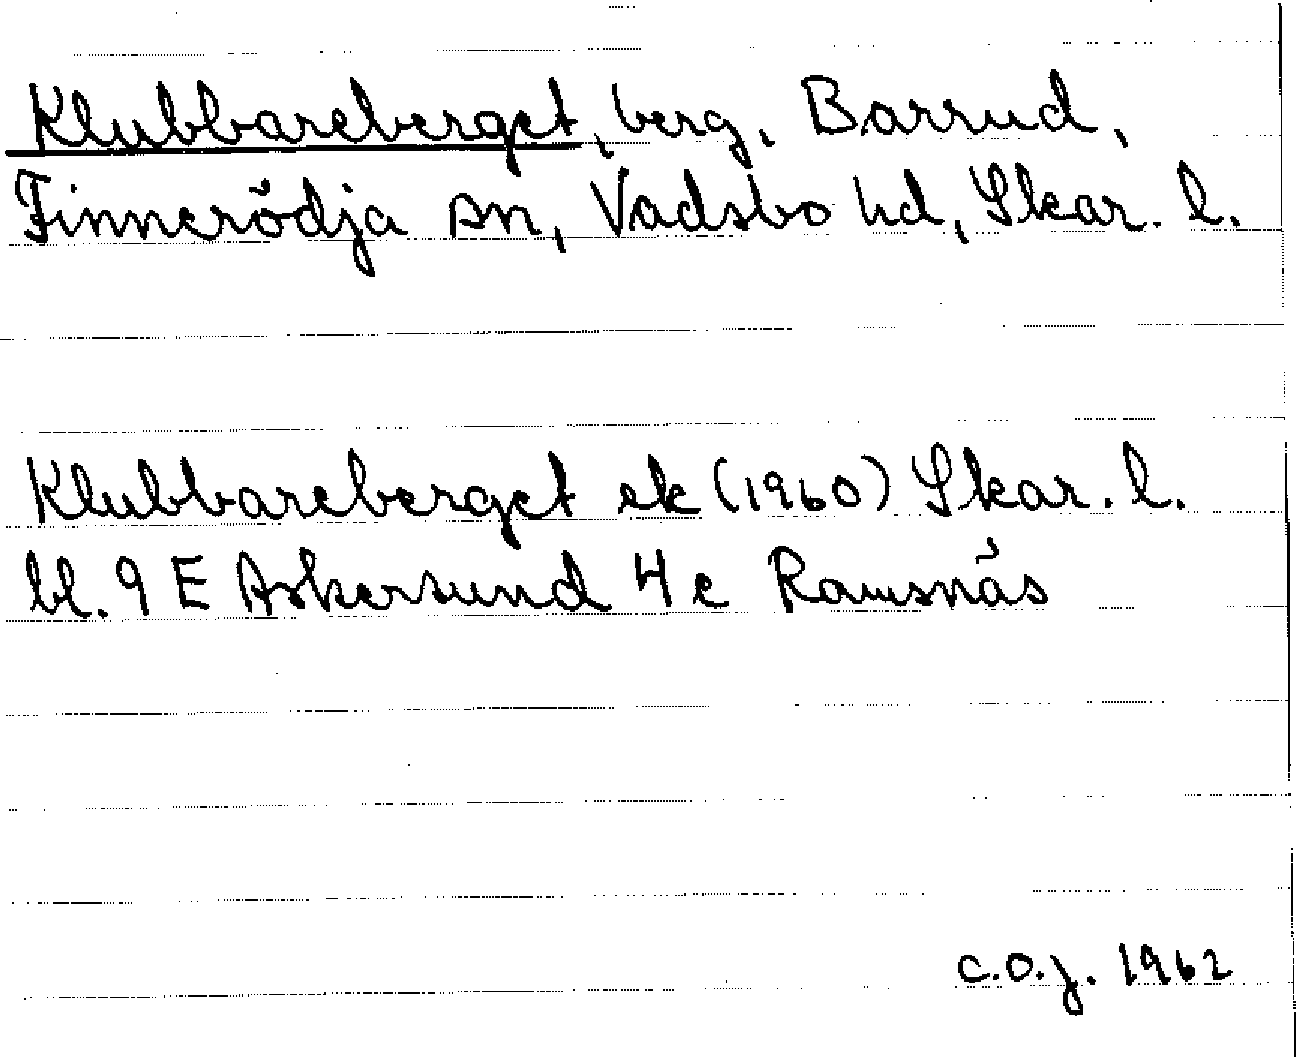 Klubbareberget, berg, Barrud,
Finnerödja sn, Vadsbo hd, Skar. l.
Klubbareberget ek (1960) Skar. l.
bl. 9 E Askersund 4 c Ramsnäs
C.O.J. 1962